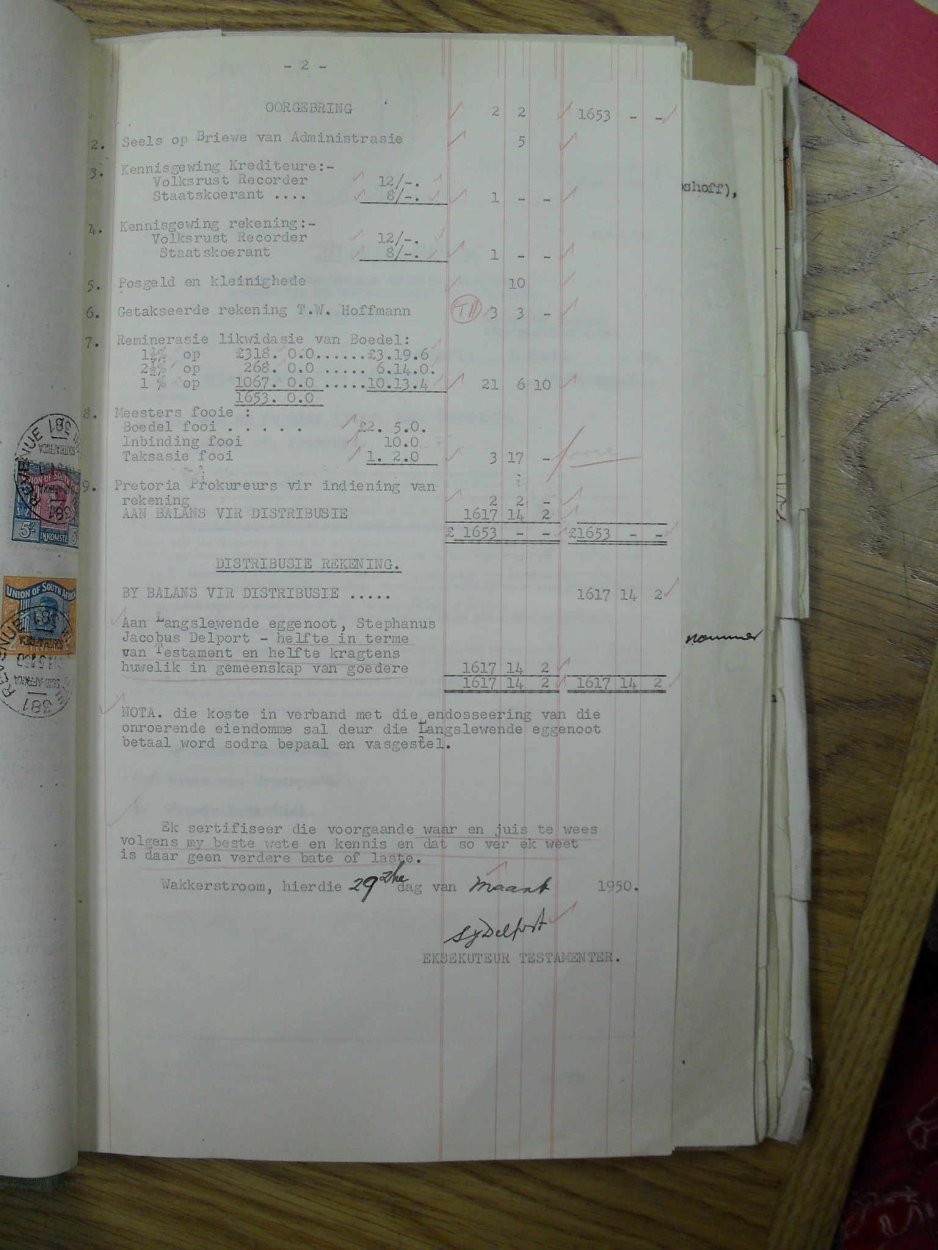 - 2 -
OORGEBRING 2 2 1653 - -
2. Seels op Briewe van Administrasie 5
3. Kennisgewing Krediteure:-
Volksrust Recorder 12/-.
Staatskoerant .... 8/-. 1 - -
4. Kennisgewing rekening:-
Volksrust Recorder 12/-.
Staatskoerant 8/-. 1 - -
5. Posgeld en kleinighede 10
6. Getakseerde rekening T.W. Hoffmann 3 3 -
7. Reminerasie likwidasie van Boedel:
op £318. 0.0......£3.19.6
2½% op 268. 0.0 ..... 6.14.0.
1 % op 1067. 0.0 .....10.13.4 21 6 10
1653. 0.0
8. Meesters fooie :
Boedel fooi . . . . . £2. 5.0.
Inbinding fooi 10.0
Taksasie fooi 1. 2.0 3 17 -
9. Pretoria Prokureurs vir indiening van
rekening 2 2 -
AAN BALANS VIR DISTRIBUSIE 1617 14 2
£ 1653 - - £1653 - -
DISTRIBUSIE REKENING.
BY BALANS VIR DISTRIBUSIE ..... 1617 14 2
Aan Langslewende eggenoot, Stephanus
Jacobus Delport - helfte in terme
van Testament en helfte kragtens
huwelik in gemeenskap van goedere 1617 14 2
1617 14 2 1617 14 2
NOTA. die koste in verband met die endosseering van die
onroerende eiendomme sal deur die Langslewende eggenoot
betaal word sodra bepaal en vasgestel.
Ek sertifiseer die voorgaande waar en juis te wees
volgens my beste wete en kennis en dat so ver ek weet
is daar geen verdere bate of laste.
Wakkerstroom, hierdie 29ste dag van Maart 1950.
SJ Delport
EKSEKUTEUR TESTAMENTER.
oshoff),
nommer
REVENUE
381
UNION OF SOUTH AFRICA
5/-
INKOMSTE
UNION OF SOUTH AFRICA
REVENUE
381